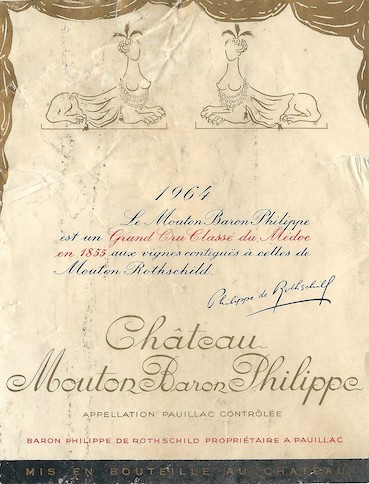 1964
Le Mouton Baron Philippe
est un Grand Cru Classé du Médoc
en 1855 aux vignes contiguës à celles de
Mouton Rothschild.
Philippe de Rothschild
Château
Mouton Baron Philippe
APPELLATION PAUILLAC CONTRÔLÉE
BARON PHILIPPE DE ROTHSCHILD PROPRIÉTAIRE A PAUILLAC
MIS EN BOUTEILLE AU CHÂTEAU